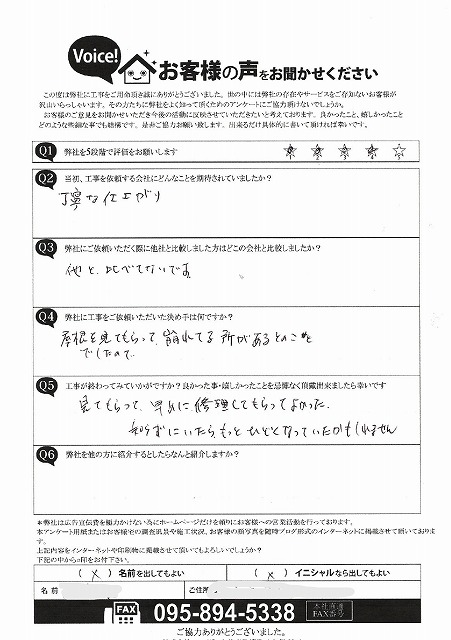 Voice!
お客様の声をお聞かせください
この度は弊社に工事をご用命頂き誠にありがとうございました。世の中には弊社の存在やサービスをご存知ないお客様が
沢山いらっしゃいます。その方たちに弊社をよく知って頂くためのアンケートにご協力頂けないでしょうか。
お客様のご意見をお聞かせいただき今後の活動に反映させていただきたいと考えております。良かったこと、嬉しかったこと
どのような些細な事でも結構です。是非ご協力お願い致します。出来るだけ具体的に書いて頂ければ幸いです。
Q1 弊社を5段階で評価をお願いします ★ ★ ★ ★ ☆
Q2 当初、工事を依頼する会社にどんなことを期待されていましたか?
丁寧な仕上がり
Q3 弊社にご依頼いただく際に他社と比較しました方はどこの会社と比較しましたか?
他と、比べてないです
Q4 弊社に工事をご依頼いただいた決め手は何ですか?
屋根を見てもらって、崩れてる所があるとのこと
でしたので、
Q5 工事が終わってみていかがですか?良かった事・嬉しかったことを忌憚なく頂戴出来ましたら幸いです
見てもらって、早めに修理してもらってよかった。
知らずにいたら、もっとひどくなっていたかもしれません
Q6 弊社を他の方に紹介するとしたらなんと紹介しますか?
*弊社は広告宣伝費を極力かけない為にホームページだけを頼りにお客様への営業活動を行っております。
本アンケート用紙またはお客様宅の調査風景や施工状況、お客様の顔写真を随時ブログ形式のインターネットに掲載させて頂いておりま
す。
上記内容をインターネットや印刷物に掲載させて頂いてもよろしいでしょうか?
下記の中から○印をお付け下さい。
( × ) 名前を出してもよい ( × ) イニシャルなら出してもよい
名前 ご住所
FAX 095-894-5338 本社直通 FAX番号
ご協力ありがとうございました。